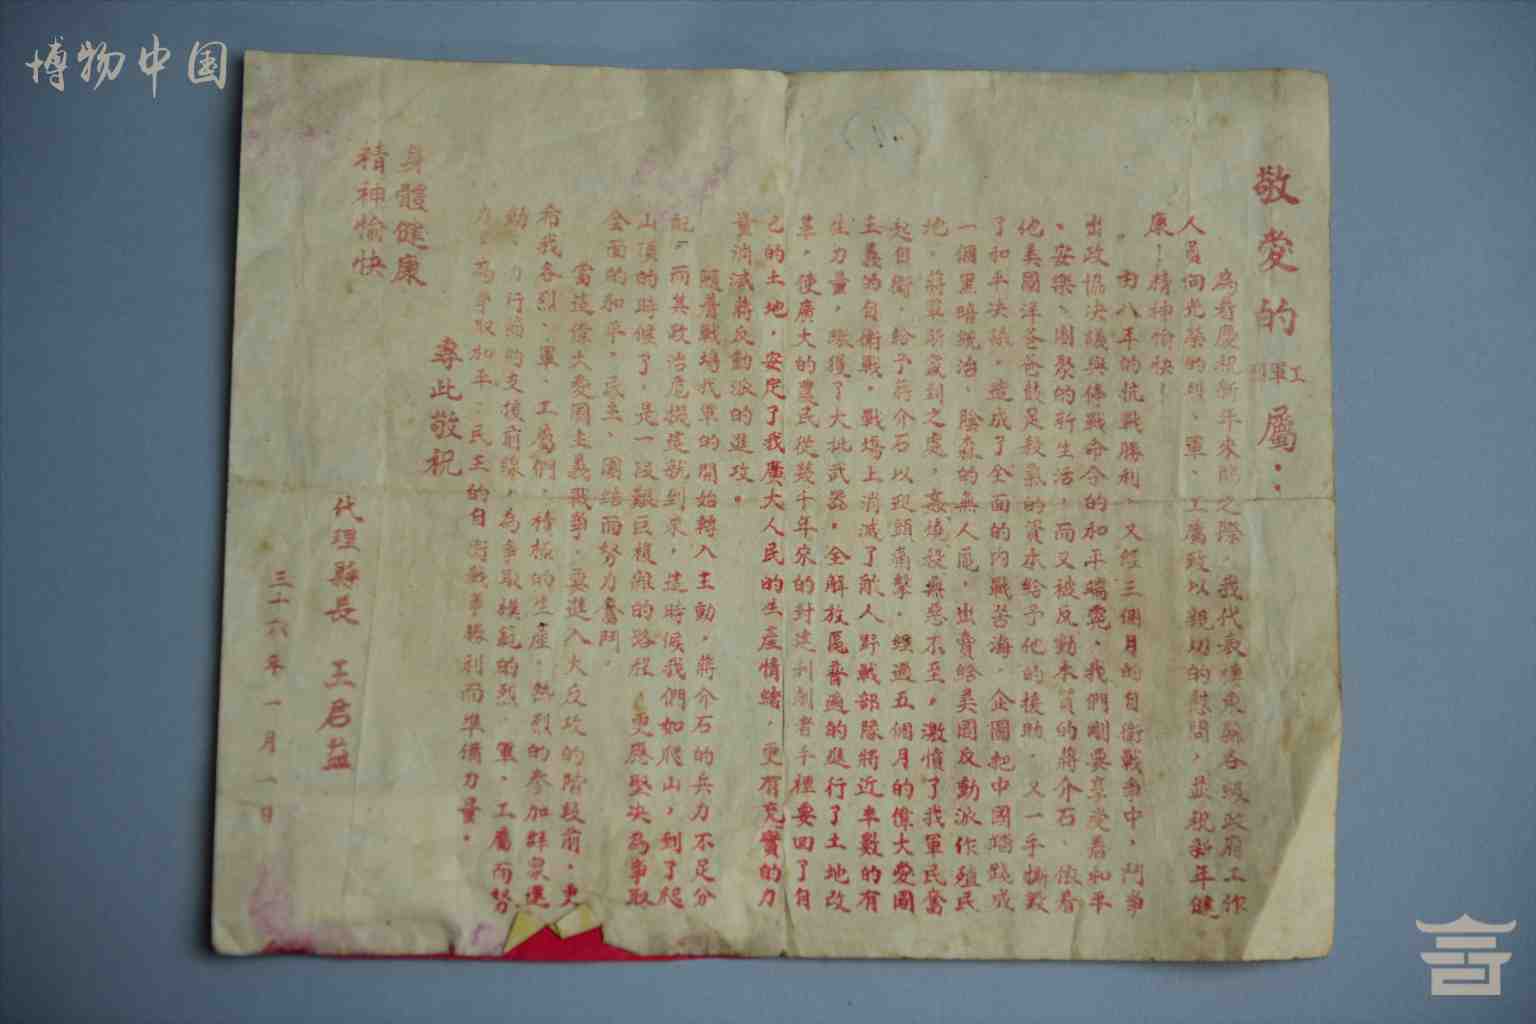 博物中国
敬愛的烈軍工屬：
為着慶祝新年來臨之際，我代表種東縣各級政府工作
人員向光榮的烈、軍、工屬致以親切的慰問，並祝新年健
康！精神愉快！
由八年的抗戰勝利，又經三個月的自衛戰爭中，鬥爭
出政協決議與停戰命令的和平瑞靄，我們剛要享受着和平
、安樂、團聚的新生活，而又被反動本質的蔣介石，依着
他美國洋爸爸飲足殺氣的資本給予他的援助，又一手撕毀
了和平決議，造成了全面的內戰苦海，企圖把中國踏踐成
一個黑暗統治、陰森的無人區，出賣給美國反動派作殖民
地，蔣軍所竄到之處，姦燒殺無惡不至，激憤了我軍民奮
起自衛，給予蔣介石以迎頭痛擊，經過五個月的偉大愛國
主義的自衛戰，戰場上消滅了敵人野戰部隊將近半數的有
生力量，繳獲了大批武器，全解放區普遍的進行了土地改
革，使廣大的農民從幾千年來的封建剝削者手裡要回了自
己的土地，安定了我廣大人民的生產情緒，更有充實的力
量消滅蔣反動派的進攻。
隨着戰場我軍的開始轉入主動，蔣介石的兵力不足分
配，而其政治危機遽就到來，這時候我們如爬山，到了爬
山頂的時候了，是一段艱巨複雜的路程，更應堅決為爭取
全面的和平、民主、團結而努力奮鬥。
當這偉大愛國主義戰爭，要進入大反攻的階段前，更
希我各烈、軍、工屬們，積極的生產，熱烈的參加群眾運
動，力行的支援前線，為爭取模範的烈、軍、工屬而努
力，為爭取和平、民主的自衛戰爭勝利而準備力量。
專此敬祝
身體健康
精神愉快
代理縣長 王君益
三十六年一月一日